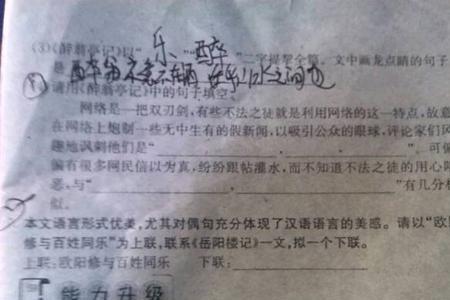 (3)《醉翁亭记》以"乐""醉"二字提挈全篇。文中画龙点睛的句子
是 醉翁之意不在酒 在乎山水之间也
请用《醉翁亭记》中的句子填空。
网络是一把双刃剑,有些不法之徒就是利用网络的这一特点,故意
在网络上炮制一些无中生有的假新闻,以吸引公众的眼球。评论家们风
趣地讽刺他们是" , "。可
偏有很多网民信以为真,纷纷跟帖灌水,而不知道不法之徒的用心
恶,与" , "有几分
似。
本文语言形式优美,尤其对偶句充分体现了汉语语言的美感。请以"欧
修与百姓同乐"为上联,联系《岳阳楼记》一文,拟一个下联。
上联:欧阳修与百姓同乐 下联:
能力升级